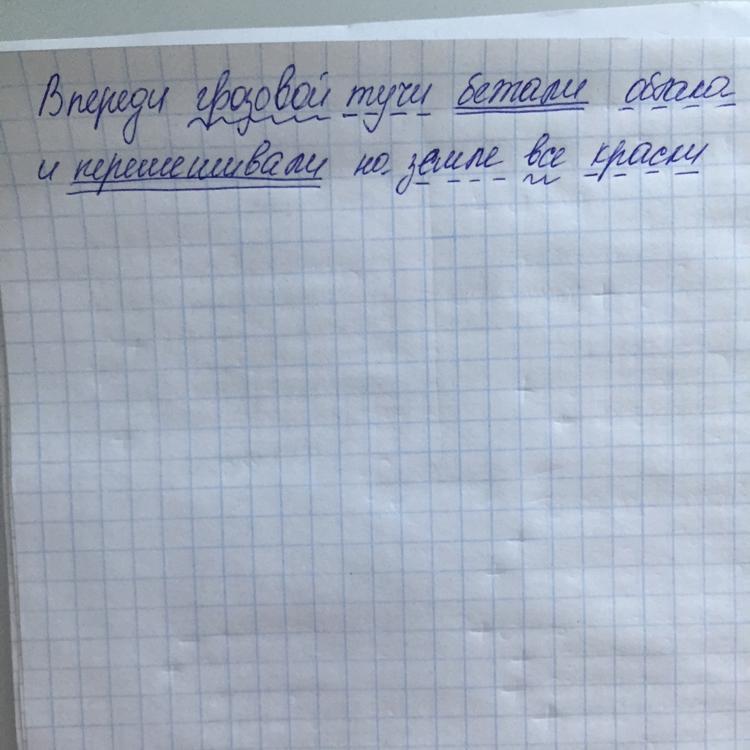 Впереди грозовой тучи бежали облака
и перемешивали на земле все краски